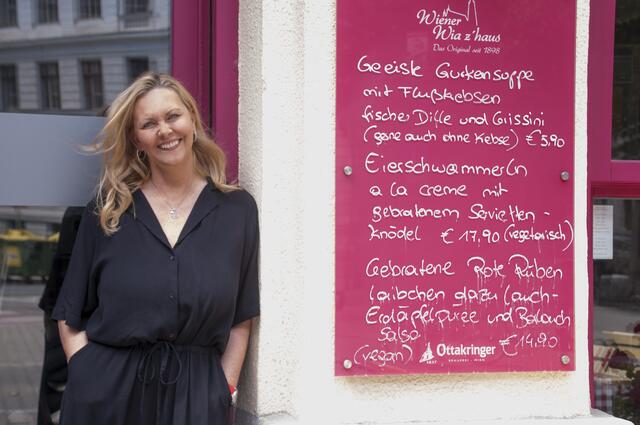 Wiener
Wia z'haus
Das Original seit 1898
Geeiste Gurkensuppe
mit Flußkrebsen
frischer Dille und Grissini
(gerne auch ohne Krebse) € 5,90
Eierschwammerln
a la creme mit
gebratenem Servietten-
knödel € 17,90 (vegetarisch)
Gebratene Rote Rüben
laibchen dazu Lauch-
Erdäpfelpüree und
Salsa
(vegan) € 14,90
Ottakringer
1837 BRAUEREI · WIEN